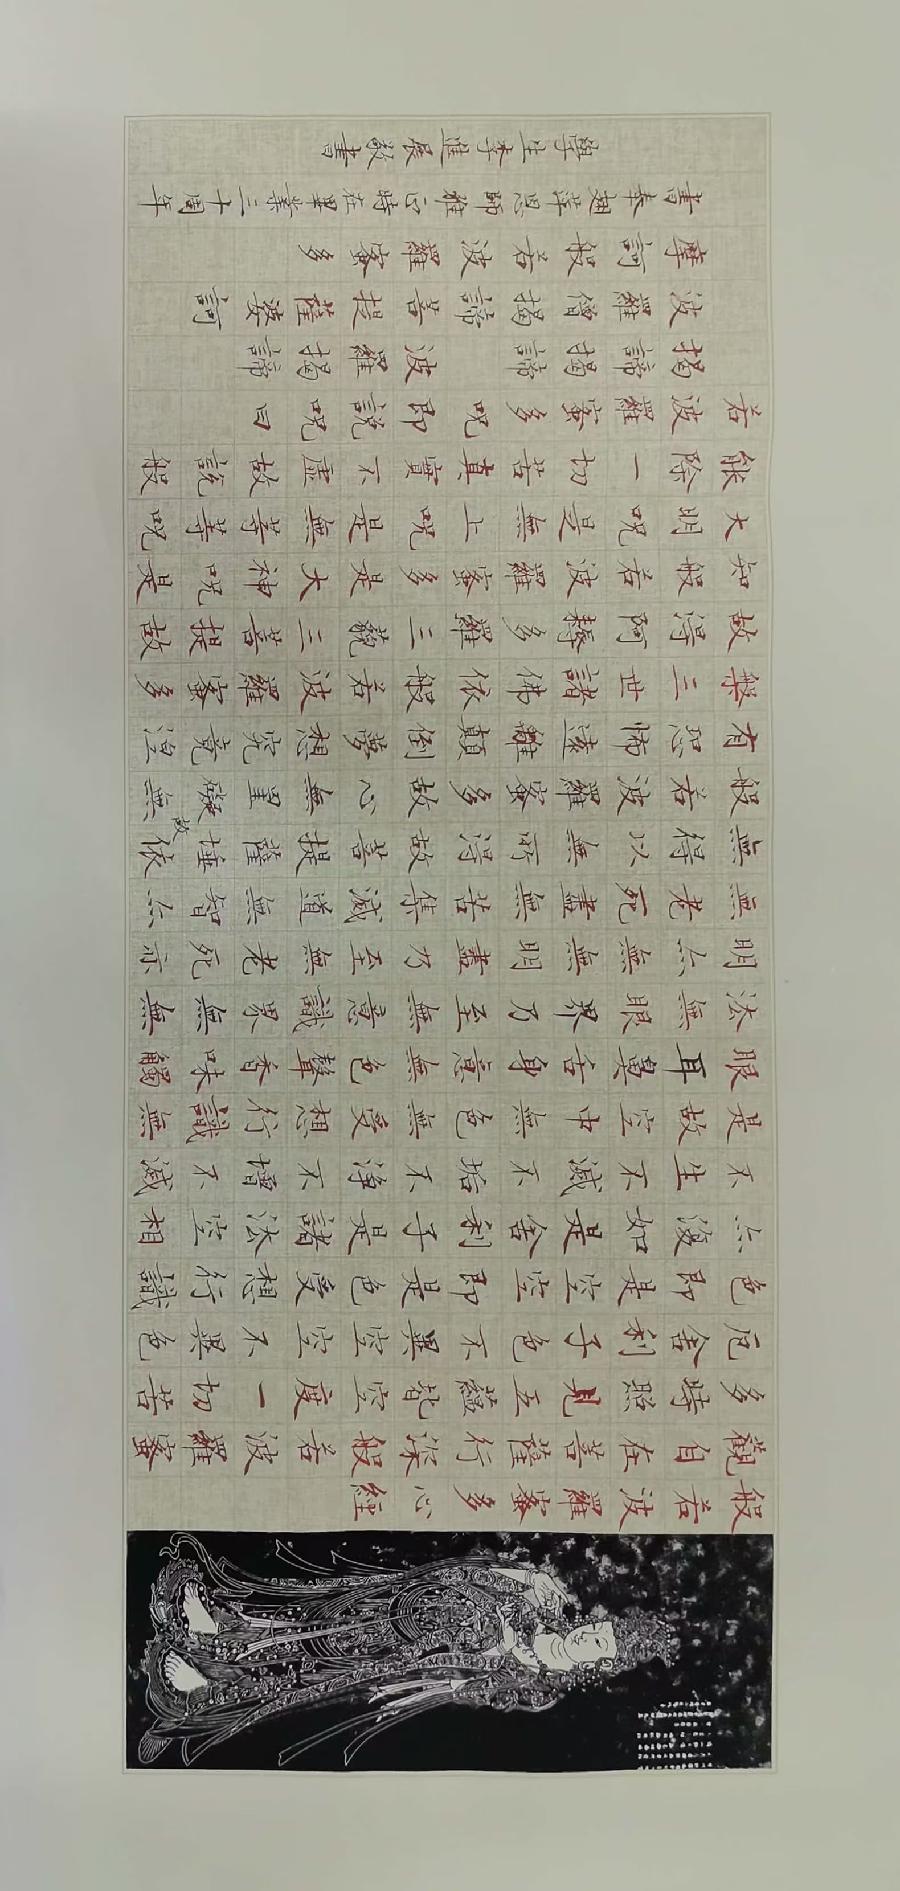 般若波羅蜜多心經
觀自在菩薩行深般若波羅蜜
多時照見五蘊皆空度一切苦
厄舍利子色不異空空不異色
色即是空空即是色受想行識
亦復如是舍利子是諸法空相
不生不滅不垢不淨不增不減
是故空中無色無受想行識無
眼耳鼻舌身意無色聲香味觸
法無眼界乃至無意識界無無
明亦無無明盡乃至無老死亦
無老死盡無苦集滅道無智亦
無得以無所得故菩提薩埵依
般若波羅蜜多故心無罣礙故無
有恐怖遠離顛倒夢想究竟涅
槃三世諸佛依般若波羅蜜多
故得阿耨多羅三藐三菩提故
知般若波羅蜜多是大神呪是
大明呪是無上呪是無等等呪
能除一切苦真實不虛故說般
若波羅蜜多呪即說呪曰
揭諦揭諦 波羅揭諦
波羅僧揭諦菩提薩婆訶
摩訶般若波羅蜜多
書奉翅萍恩師雅正時在畢業三十周年
學生李進展敬書